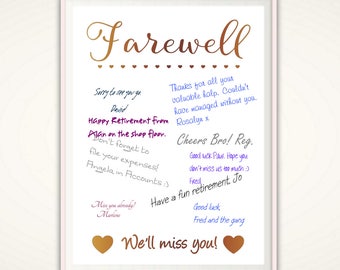 Farewell
Sorry to see you go.
David
Thanks for all your
valuable help. Couldn't
have managed without you.
Rosalyn x
Happy Retirement from
Dylan on the shop floor.
Don't forget to
file your expenses!
Angela in Accounts :)
Cheers Bro! Reg.
Good luck Paul. Hope you
don't miss us too much :)
Fred
Have a fun retirement. Jo
Miss you already!
Marlene
Good luck
Fred and the gang
We'll miss you!